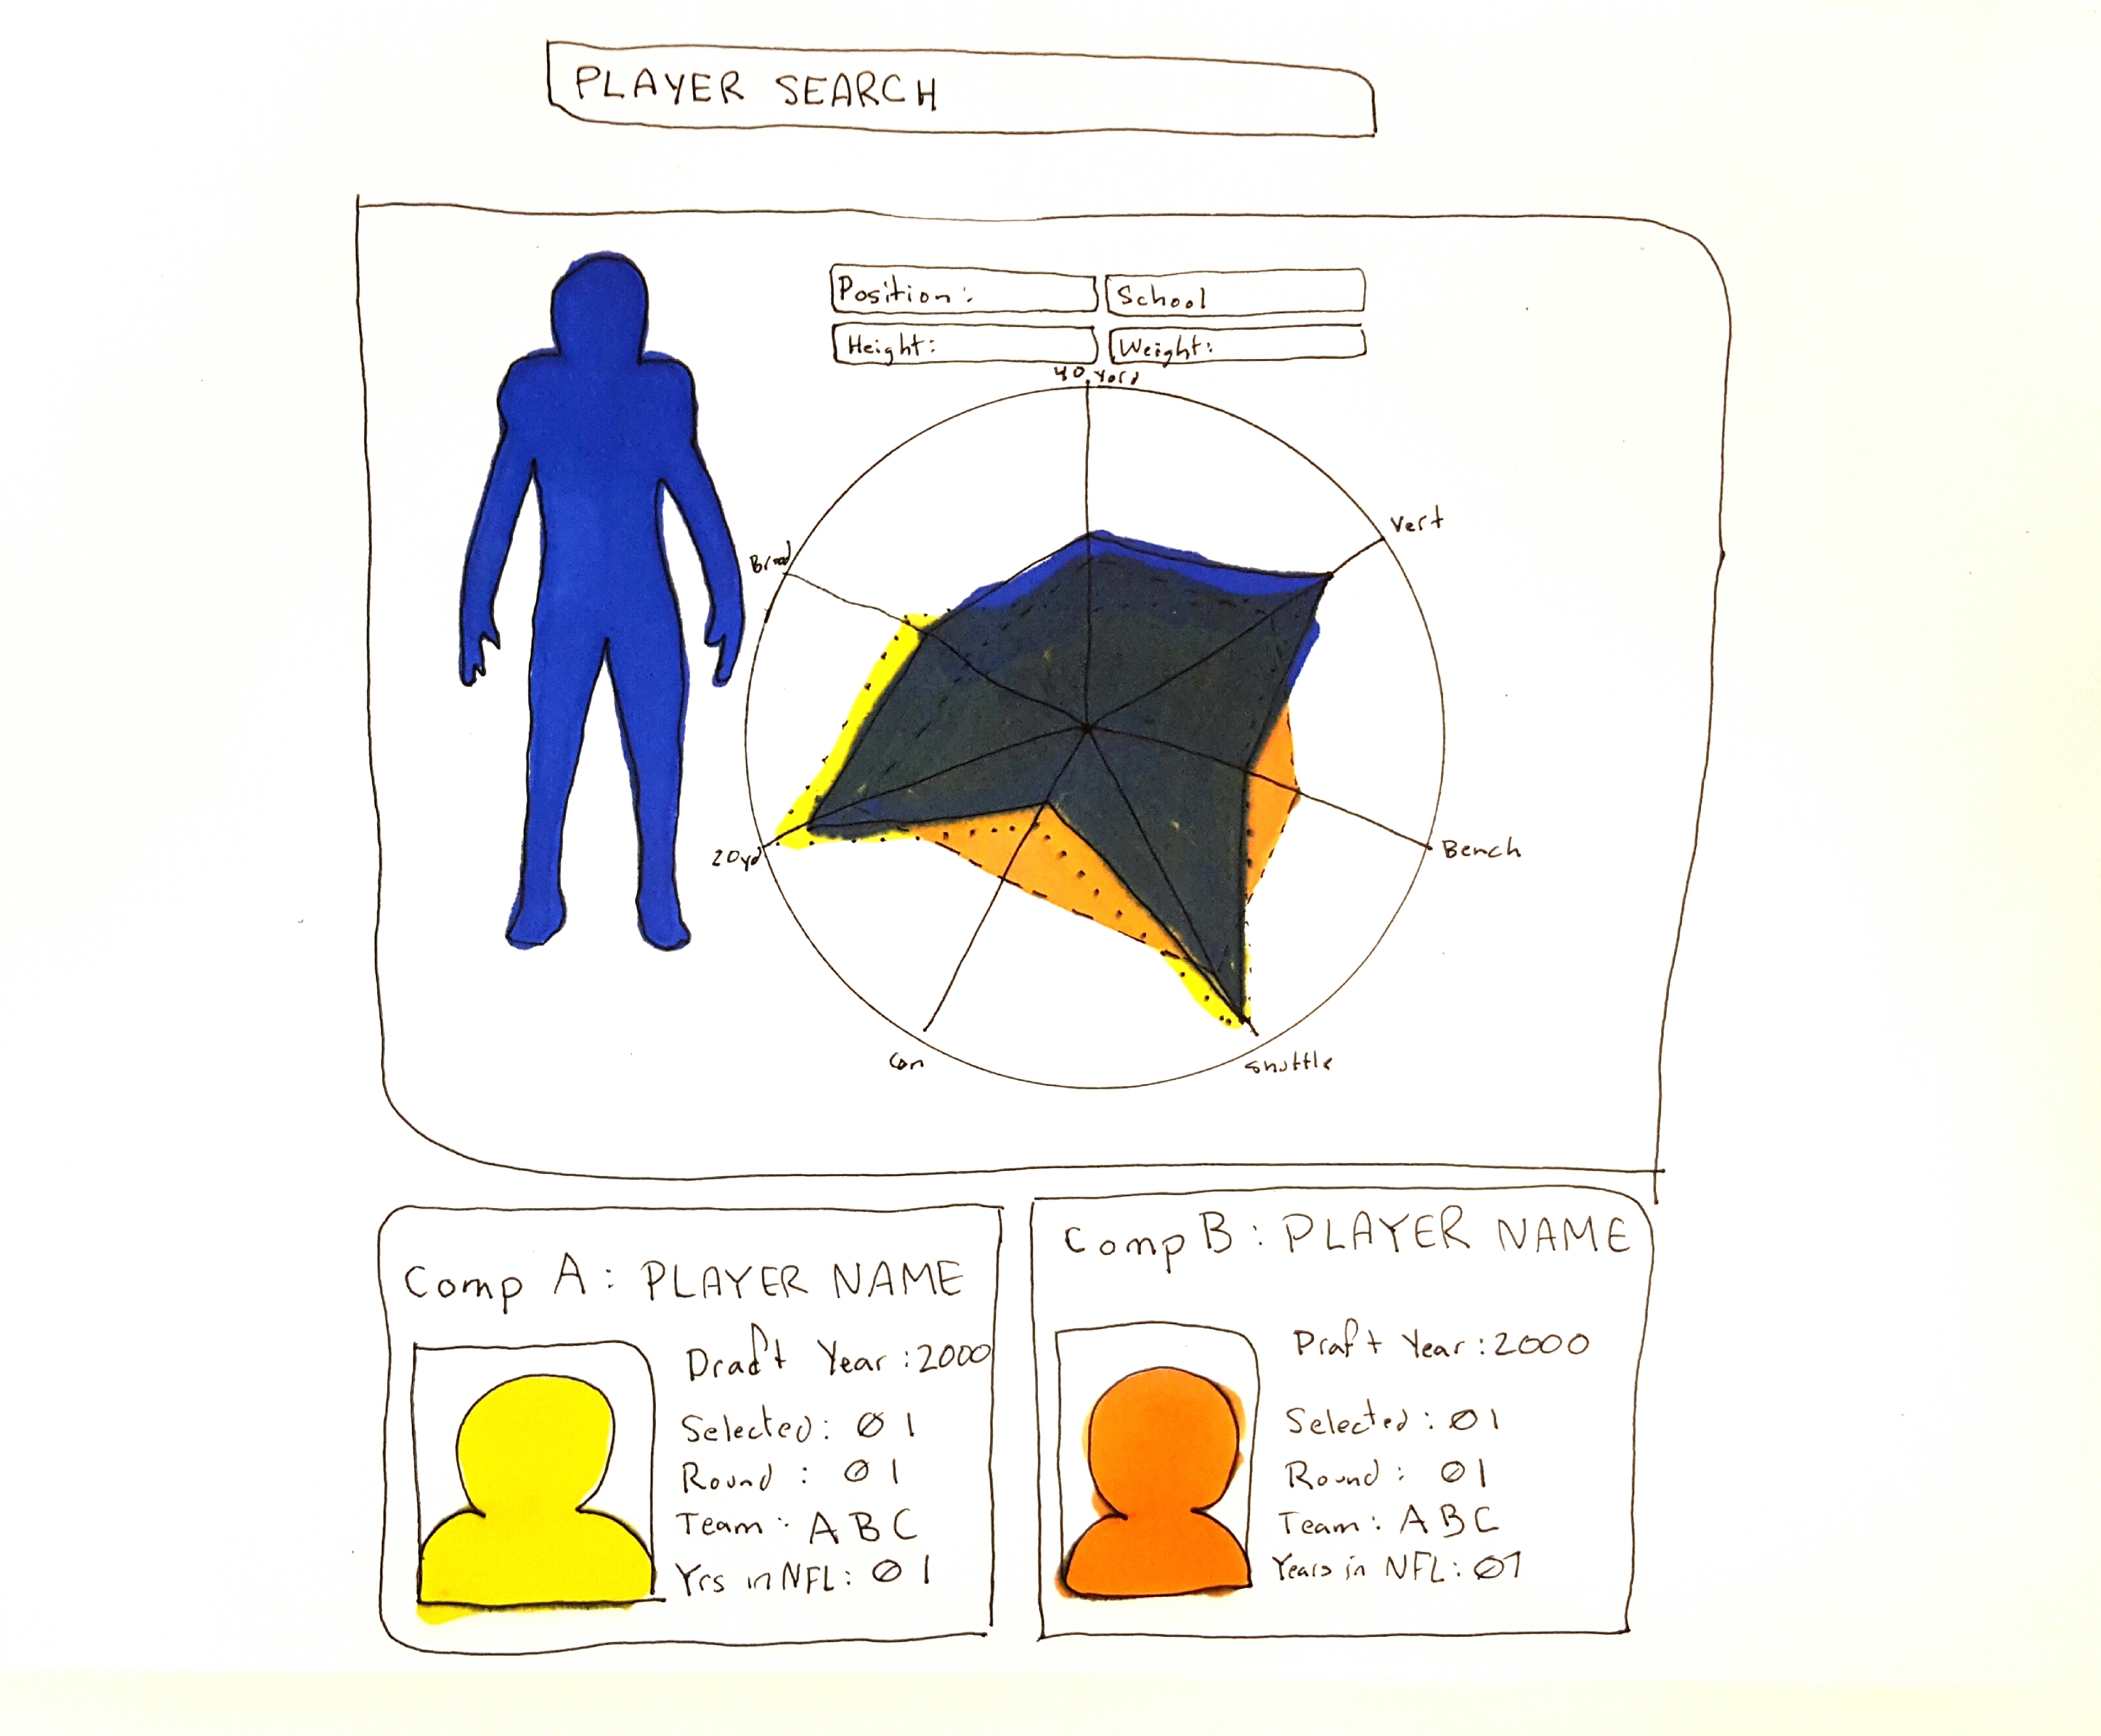 PLAYER SEARCH
Position: School
Height: Weight:
40 yard
Vert
Broad
Bench
20yd
Con
Shuttle
Comp A: PLAYER NAME
Draft Year: 2000
Selected: Ø1
Round: Ø1
Team: ABC
Yrs in NFL: Ø1
Comp B: PLAYER NAME
Draft Year: 2000
Selected: Ø1
Round: Ø1
Team: ABC
Years in NFL: Ø1